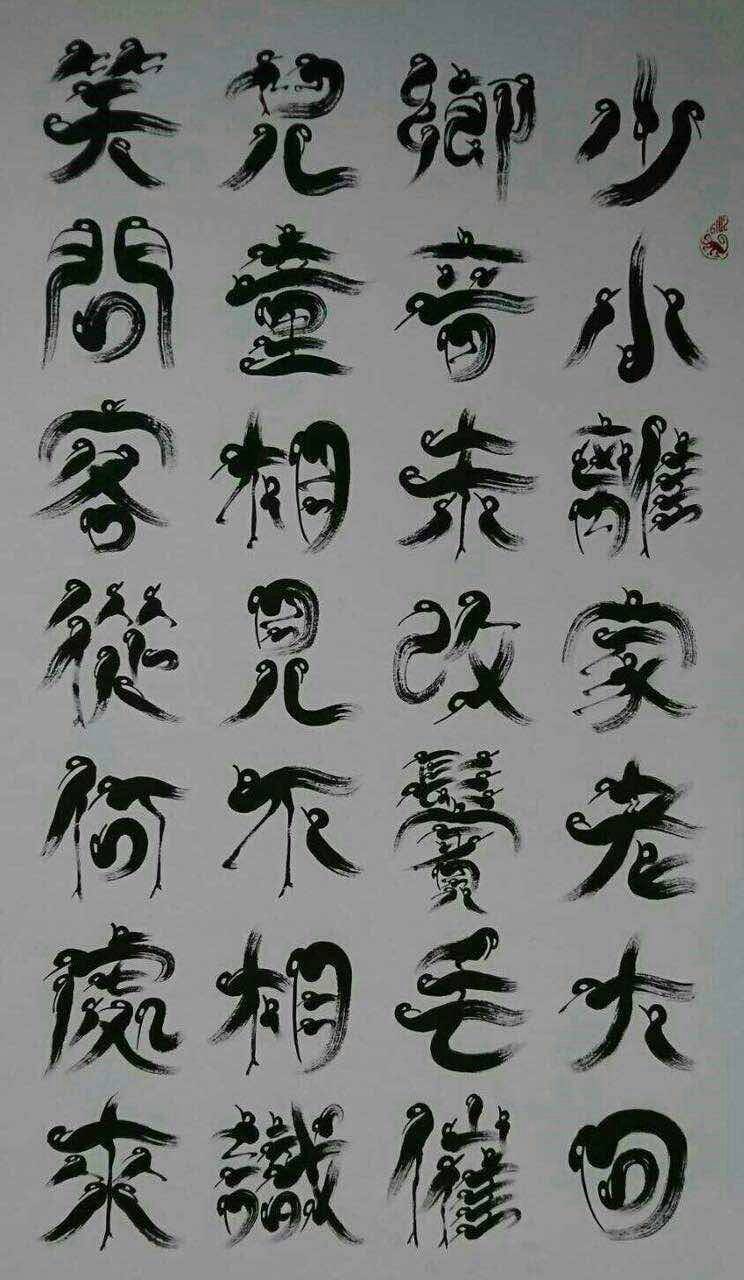 少小離家老大回
鄉音未改鬢毛催
兒童相見不相識
笑問客從何處來